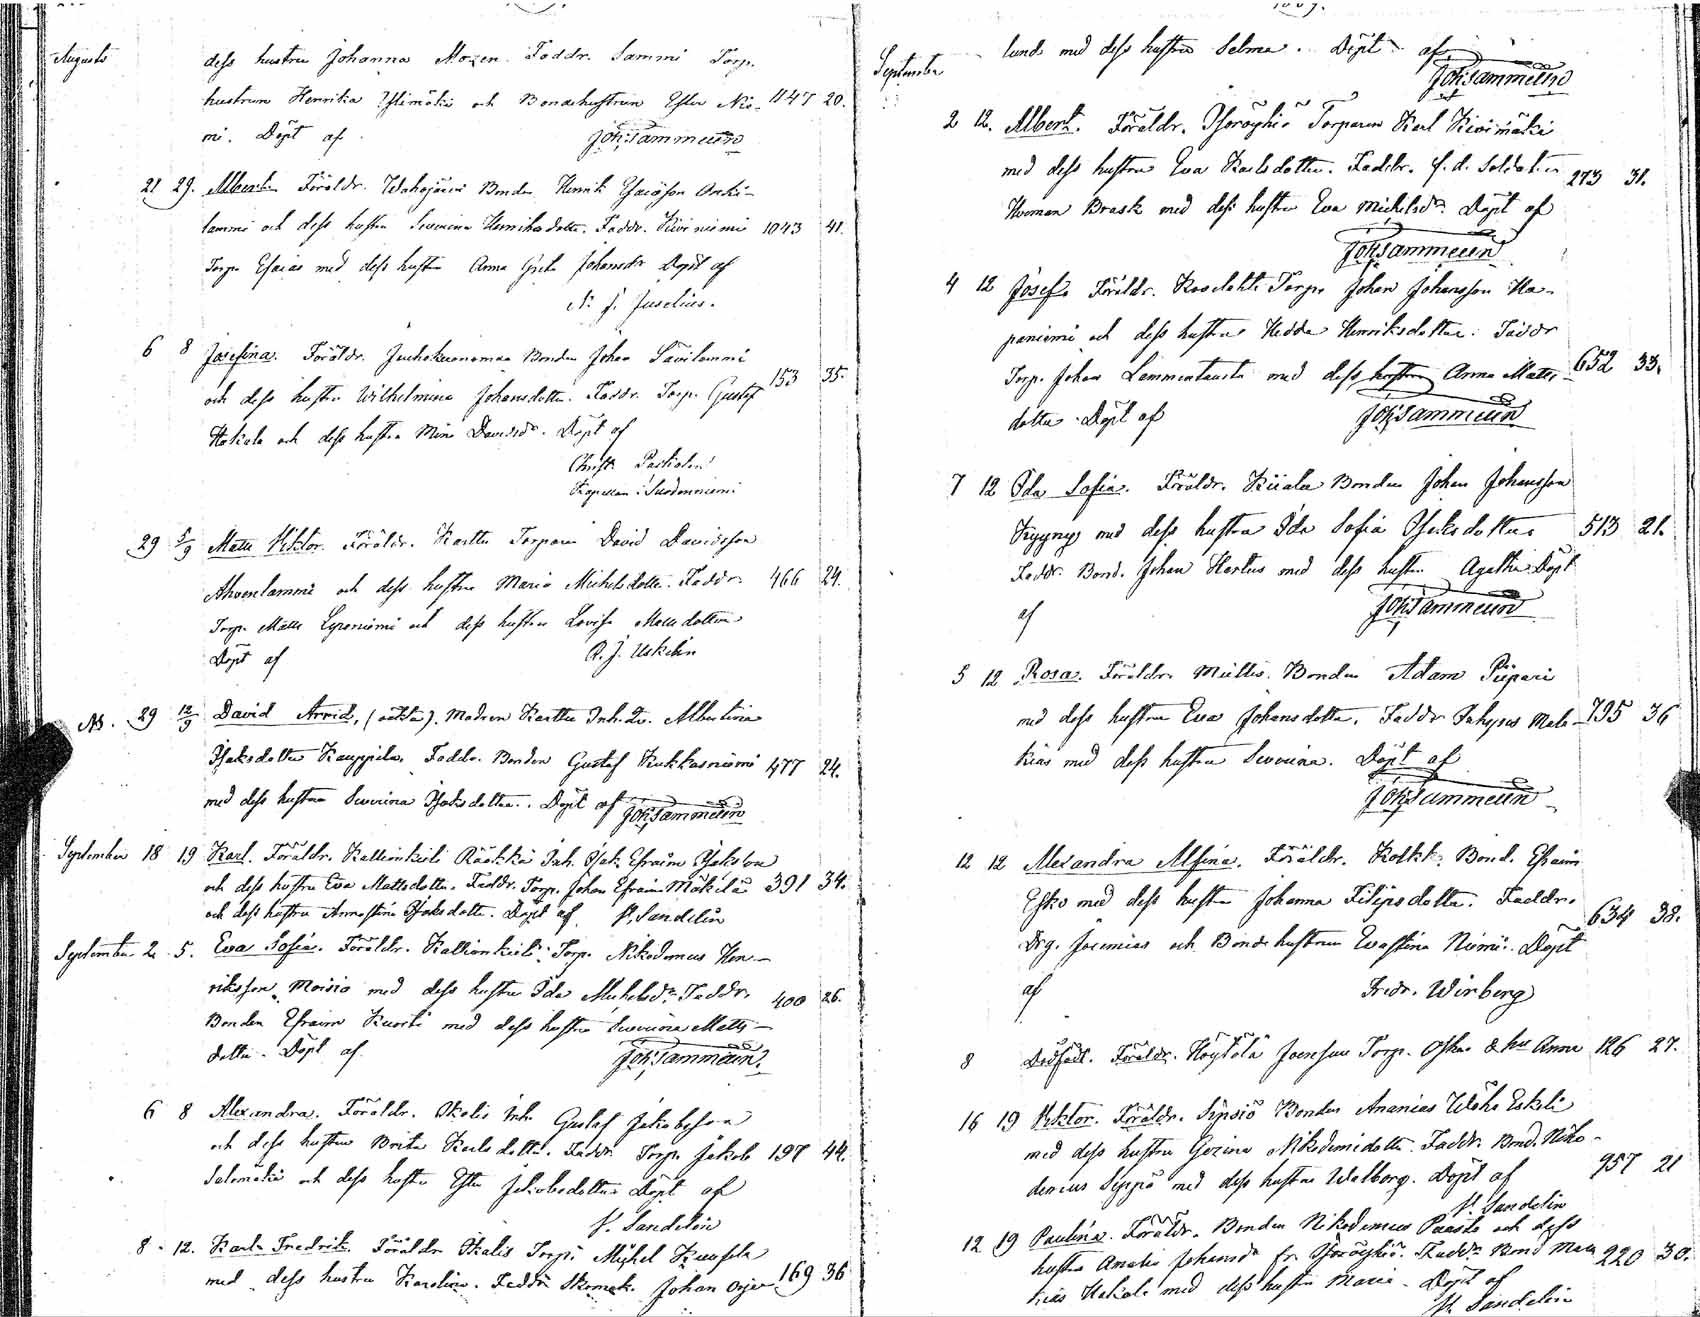 Augusti
dess hustru Johanna Mozen. Faddr. Sammi Torp.
hustrun Henrika Ylimäki och Bondehustrun Ester Nie- 1147 20.
mi. Döpt af Joh: Tammelin
21 29. Albert. Föräldr. Bonden Henrik
lammi och dess hustru Severina Henriksdotter. Faddr. Kiviniemi 1043 41.
Torp. Esaias med dess hustru Anna Greta Johansdr Döpt af
N. J. Juselius.
6 8 Josefina. Föräldr. Bonden Johan Savilammi
och dess hustru Wilhelmina Johansdotter. Faddr. Torp. Gustaf 153 35.
Hakala och dess hustru Mina Davidsdr. Döpt af
Christ.
Kapellan i Suodenniemi
29 5/9 Matts Viktor. Föräldr. Karttu Torparen David Davidsson
Ahvenlammi och dess hustru Maria Michelsdotter. Faddr. 466 24.
Torp. Matts och dess hustru Lovisa Mattsdotter
Döpt af R. J. Uskelin
NB. 29 12/9 David Arvid, (oäkta). Modren Karttu Inh.dr. Albertina
Isaksdotter Kauppila. Faddr. Bonden Gustaf Kukkasniemi 477 24.
med dess hustru Severina Isaksdotter. Döpt af Joh: Tammelin
September 18 19 Karl. Föräldr. Kallionkieli Inh. Isak Efraim Isaksson
och dess hustru Eva Mattsdotter. Faddr. Torp. Johan Efraim Mäkelä 391 34.
och dess hustru Annastina Isaksdotter. Döpt af Sandelin
September 2 5. Eva Sofia. Föräldr. Kallionkieli Torp. Nikodemus Hen-
riksson Moisio med dess hustru Ida Michelsdr. Faddr. 400 26.
Bonden Efraim med dess hustru Severina Matts-
dotter. Döpt af Joh: Tammelin.
6 8 Alexandra. Föräldr. Skalis Inh. Gustaf Jakobsson
och dess hustru Brita Karlsdotter. Faddr. Torp. Jakob 197 44.
Salomäki och dess hustru Ester Jakobsdotter Döpt af
Sandelin
8 12. Karl Fredrik. Föräldr. Skalis Torp. Michel
med dess hustru Karolina. Faddr. Skomak. Johan 169 36
September
lund med dess hustru Selma. Döpt af
Joh: Tammelin
2 12. Albert. Föräldr. Torparen Karl Kivimäki
med dess hustru Eva Karlsdotter. Faddr. f. d. Soldaten 273 31.
Herman Brask med dess hustru Eva Michelsdr. Döpt af
Joh: Tammelin
4 12 Josef. Föräldr. Torp. Johan Johansson Ha-
paniemi och dess hustru Hedda Henriksdotter. Faddr
Torp. Johan Lammentausta med dess hustru Anna Matts- 652 33.
dotter. Döpt af Joh: Tammelin
7 12 Ida Sofia. Föräldr. Kiiala Bonden Johan Johansson
med dess hustru Ida Sofia Isaksdotter 513 21.
Faddr. Bond. Johan Hertus med dess hustru Agatha Döpt
af Joh: Tammelin
5 12 Rosa. Föräldr. Bonden Adam Piipari
med dess hustru Eva Johansdotter. Faddr Mala- 795 36
kias med dess hustru Severina. Döpt af
Joh: Tammelin
12 12 Alexandra Alfina. Föräldr. Bond. Efraim
Esko med dess hustru Johanna Filipsdotter. Faddr. 634 38.
Drg. Jeremias och Bondehustrun Evastina Niemi. Döpt
af Fredr. Wirberg
8 Dödfödt. Föräldr. Torp. Oskar & hu Anna 126 27.
16 19 Viktor. Föräldr. Bonden Ananias Wäha Eskeli
med dess hustru Gezina Nikodemidotter. Faddr. Bond. Niko- 957 21
demus med dess hustru Walborg. Döpt af
Sandelin
12 19 Paulina. Föräldr. Bonden Nikodemus och dess
hustru Amalia Johansdr Faddr. Bond Mala- 220 30.
kias Hakala med dess hustru Maria. Döpt af
Sandelin